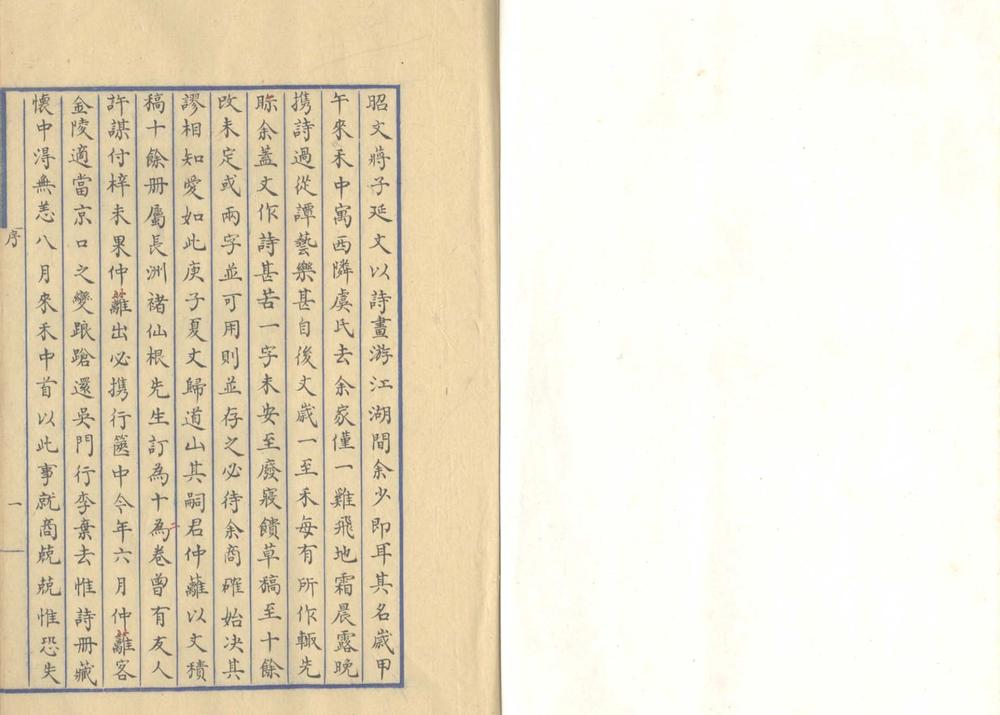 昭文蔣子延丈以詩畫游江湖間余少即耳其名歲甲
午來禾中寓西隣虞氏去余家僅一雞飛地霜晨露晚
携詩過從譚藝樂甚自後丈歲一至禾每有所作輙先
眎余蓋丈作詩甚苦一字未安至廢寢饋草稿至十餘
改未定或兩字並可用則並存之必待余商確始决其
謬相知愛如此庚子夏丈歸道山其嗣君仲蘺以丈積
稿十餘册屬長洲褚仙根先生訂為十為二卷曾有友人
許謀付梓未果仲蘺出必携行篋中今年六月仲蘺客
金陵適當京口之變踉蹌還吳門行李棄去惟詩册藏
懷中淂無恙八月來禾中首以此事就商兢兢惟恐失
序
一